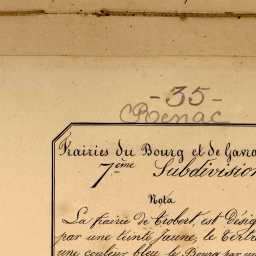 - 35 -
Renac
Prairies du Bourg et de Gavra
7ème Subdivision
Nota
La Prairie de Trobert, est Désig
par une teinte jaune, le Tertr
une couleur bleu, le Bourg par un